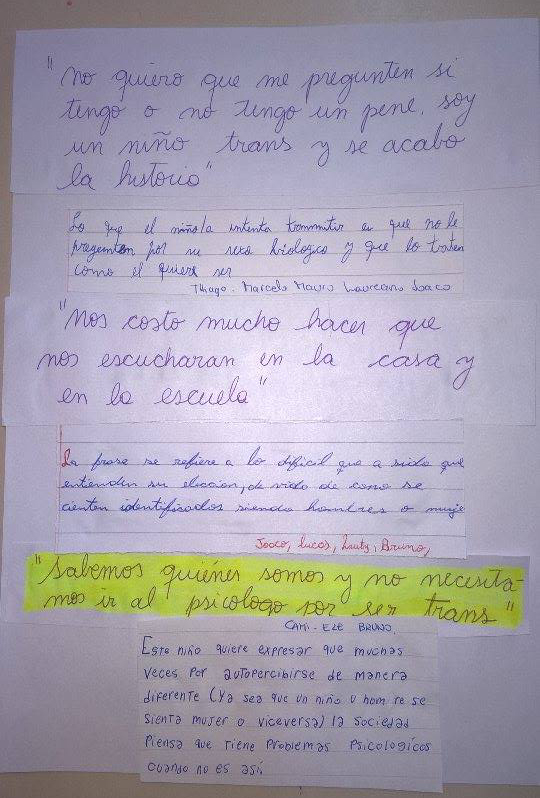 "no quiero que me pregunten si
tengo o no tengo un pene, soy
un niño trans y se acabo
la historia"
Lo que el niño/a intenta transmitir es que no le
pregunten por su sexo biologico y que lo traten
como el quiere ser
Thiago - Marcelo Mauro Laureano Joaco
"Nos costo mucho hacer que
nos escucharan en la casa y
en la escuela"
La frase se refiere a lo dificil que a sido que
entiendan su eleccion, de vido de como se
cienten identificados siendo hombres o muje
Joaco, Lucas, Bruno,
"Sabemos quiénes somos y no necesita-
mos ir al psicologo por ser trans"
CAMI - EZE BRUNO.
Este niño quiere expresar que muchas
veces por autopercibirse de manera
diferente (Ya sea que un niño u hom re se
sienta mujer o viceversa) la sociedad
Piensa que tiene problemas Psicologicos
cuando no es así.